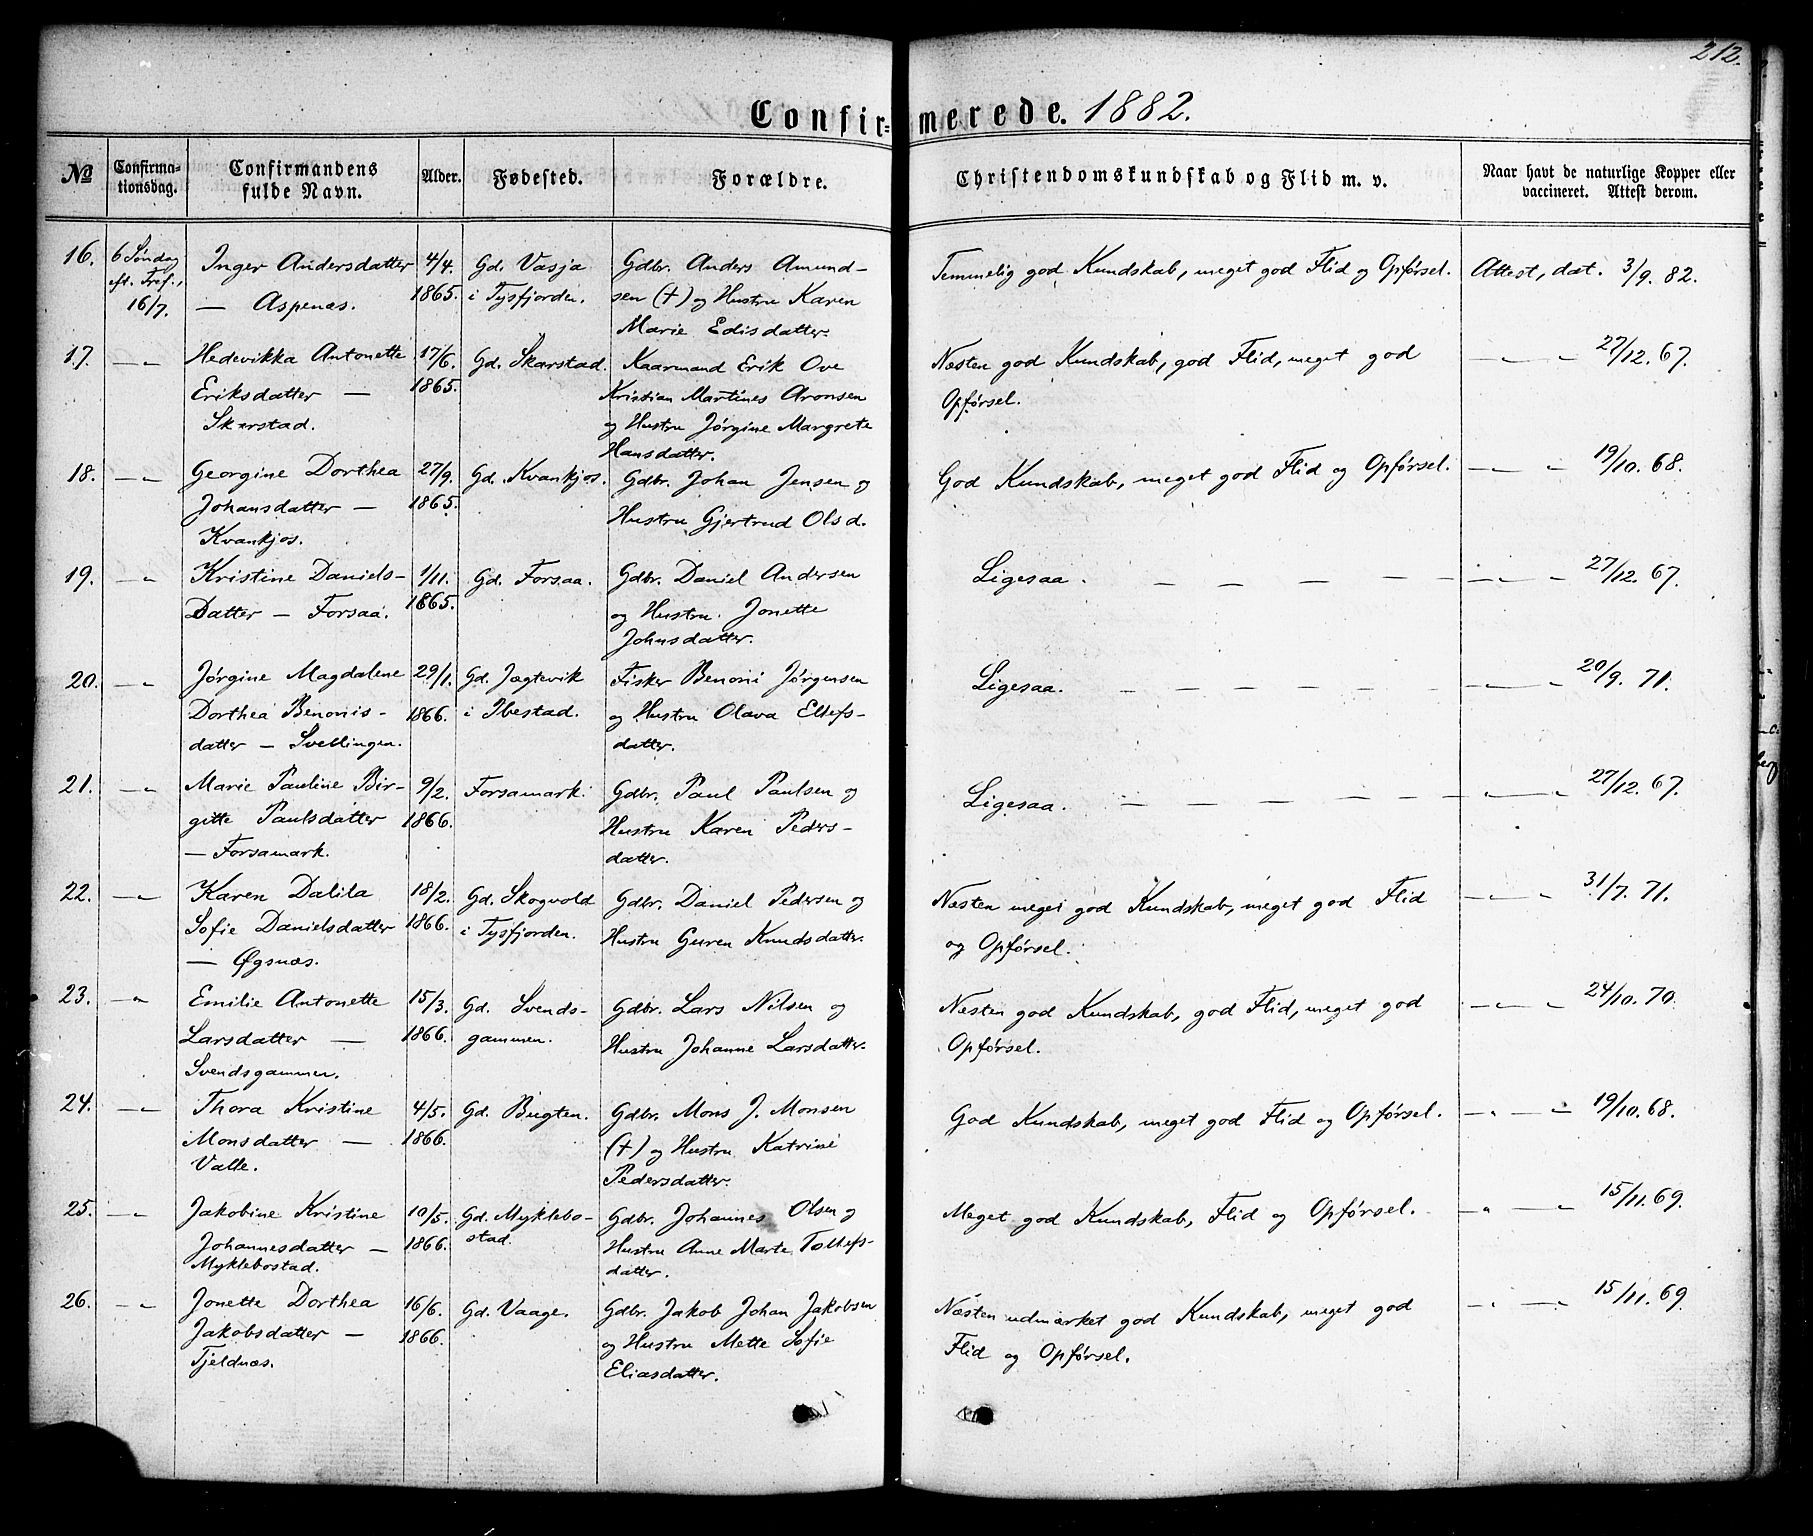 212.
Confirmerede. 1882.
No
Confirmationsdag.
Confirmandens fulde Navn.
Alder.
Fødested.
Forældre.
Christendomskundskab og Flid m. v.
Naar havt de naturlige Kopper eller vaccineret. Attest derom.
16. 6 Søndag Inger Andersdatter 4/4. Gd. Vasja Gdbr. Anders Amund- Temmelig god Kundskab, meget god Flid og Opførsel. Attest, dat. 3/9. 82.
eft. Tref., — Aspenæs. 1865. i Tysfjorden. sen (†) og Hustru Karen
16/7. Marie Edisdatter.
17. — „ Hedevikka Antonette 17/6. Gd. Skarstad. Kaarmand Erik Ove Næsten god Kundskab, god Flid, meget god — „ — „ 27/12. 67.
Eriksdatter — 1865. Kristian Martines Aronsen Opførsel.
Skarstad. og Hustru Jørgine Margrete
Hansdatter.
18. — „ Georgine Dorthea 27/9. Gd. Kvankjos. Gdbr. Johan Jensen og God Kundskab, meget god Flid og Opførsel. — „ — „ 19/10. 68.
Johansdatter — 1865. Hustru Gjertrud Olsd.
Kvankjos.
19. — „ Kristine Daniels- 1/11. Gd. Forsaa. Gdbr. Daniel Andersen Ligesaa. — — — — — — „ — „ 27/12. 67.
Datter — Forsaa. 1865. og Hustru Jonette
Johnsdatter.
20. — „ Jørgine Magdalene 29/1. Gd. Jægtevik Fisker Benoni Jørgensen Ligesaa. — — — — — — — „ — „ 20/9. 71.
Dorthea Benonis- 1866. i Ibestad. og Hustru Olava Ellefs-
datter — Svellingen. datter.
21. — „ Marie Pauline Bir- 9/2. Forsamark. Gdbr. Paul Paulsen og Ligesaa. — — — — — — „ — „ 27/12. 67.
gitte Paulsdatter 1866. Hustru Karen Peders-
— Forsamark. datter.
22. — „ Karen Dalila 18/2. Gd. Skogvold Gdbr. Daniel Pedersen og Næsten meget god Kundskab, meget god Flid — „ — „ 31/7. 71.
Sofie Danielsdatter 1866. i Tysfjorden. Hustru Guren Knudsdatter. og Opførsel.
— Øgsnæs.
23. — „ Emilie Antonette 15/3. Gd. Svends- Gdbr. Lars Nilsen og Næsten god Kundskab, god Flid, meget god — „ — „ 24/10. 70.
Larsdatter — 1866. gammen. Hustru Johanne Larsdatter. Opførsel.
Svendsgammen.
24. — „ Thora Kristine 4/5. Gd. Bugten. Gdbr. Mons J. Monsen God Kundskab, meget god Flid og Opførsel. — „ — „ 19/10. 68.
Monsdatter — 1866. (†) og Hustru Katrine
Valle. Pedersdatter.
25. — „ Jakobine Kristine 10/5. Gd. Myklebo- Gdbr. Johannes Olsen og Meget god Kundskab, Flid og Opførsel. — „ — „ 15/11. 69.
Johannesdatter — 1866. stad. Hustru Anne Marte Tollefs-
Myklebostad. datter.
26. — „ Jonette Dorthea 16/6. Gd. Vaage. Gdbr. Jakob Johan Jakobsen Næsten udmærket god Kundskab, meget god — „ — „ 15/11. 69.
Jakobsdatter — 1866. og Hustru Mette Sofie Flid og Opførsel.
Tjeldnæs. Eliasdatter.